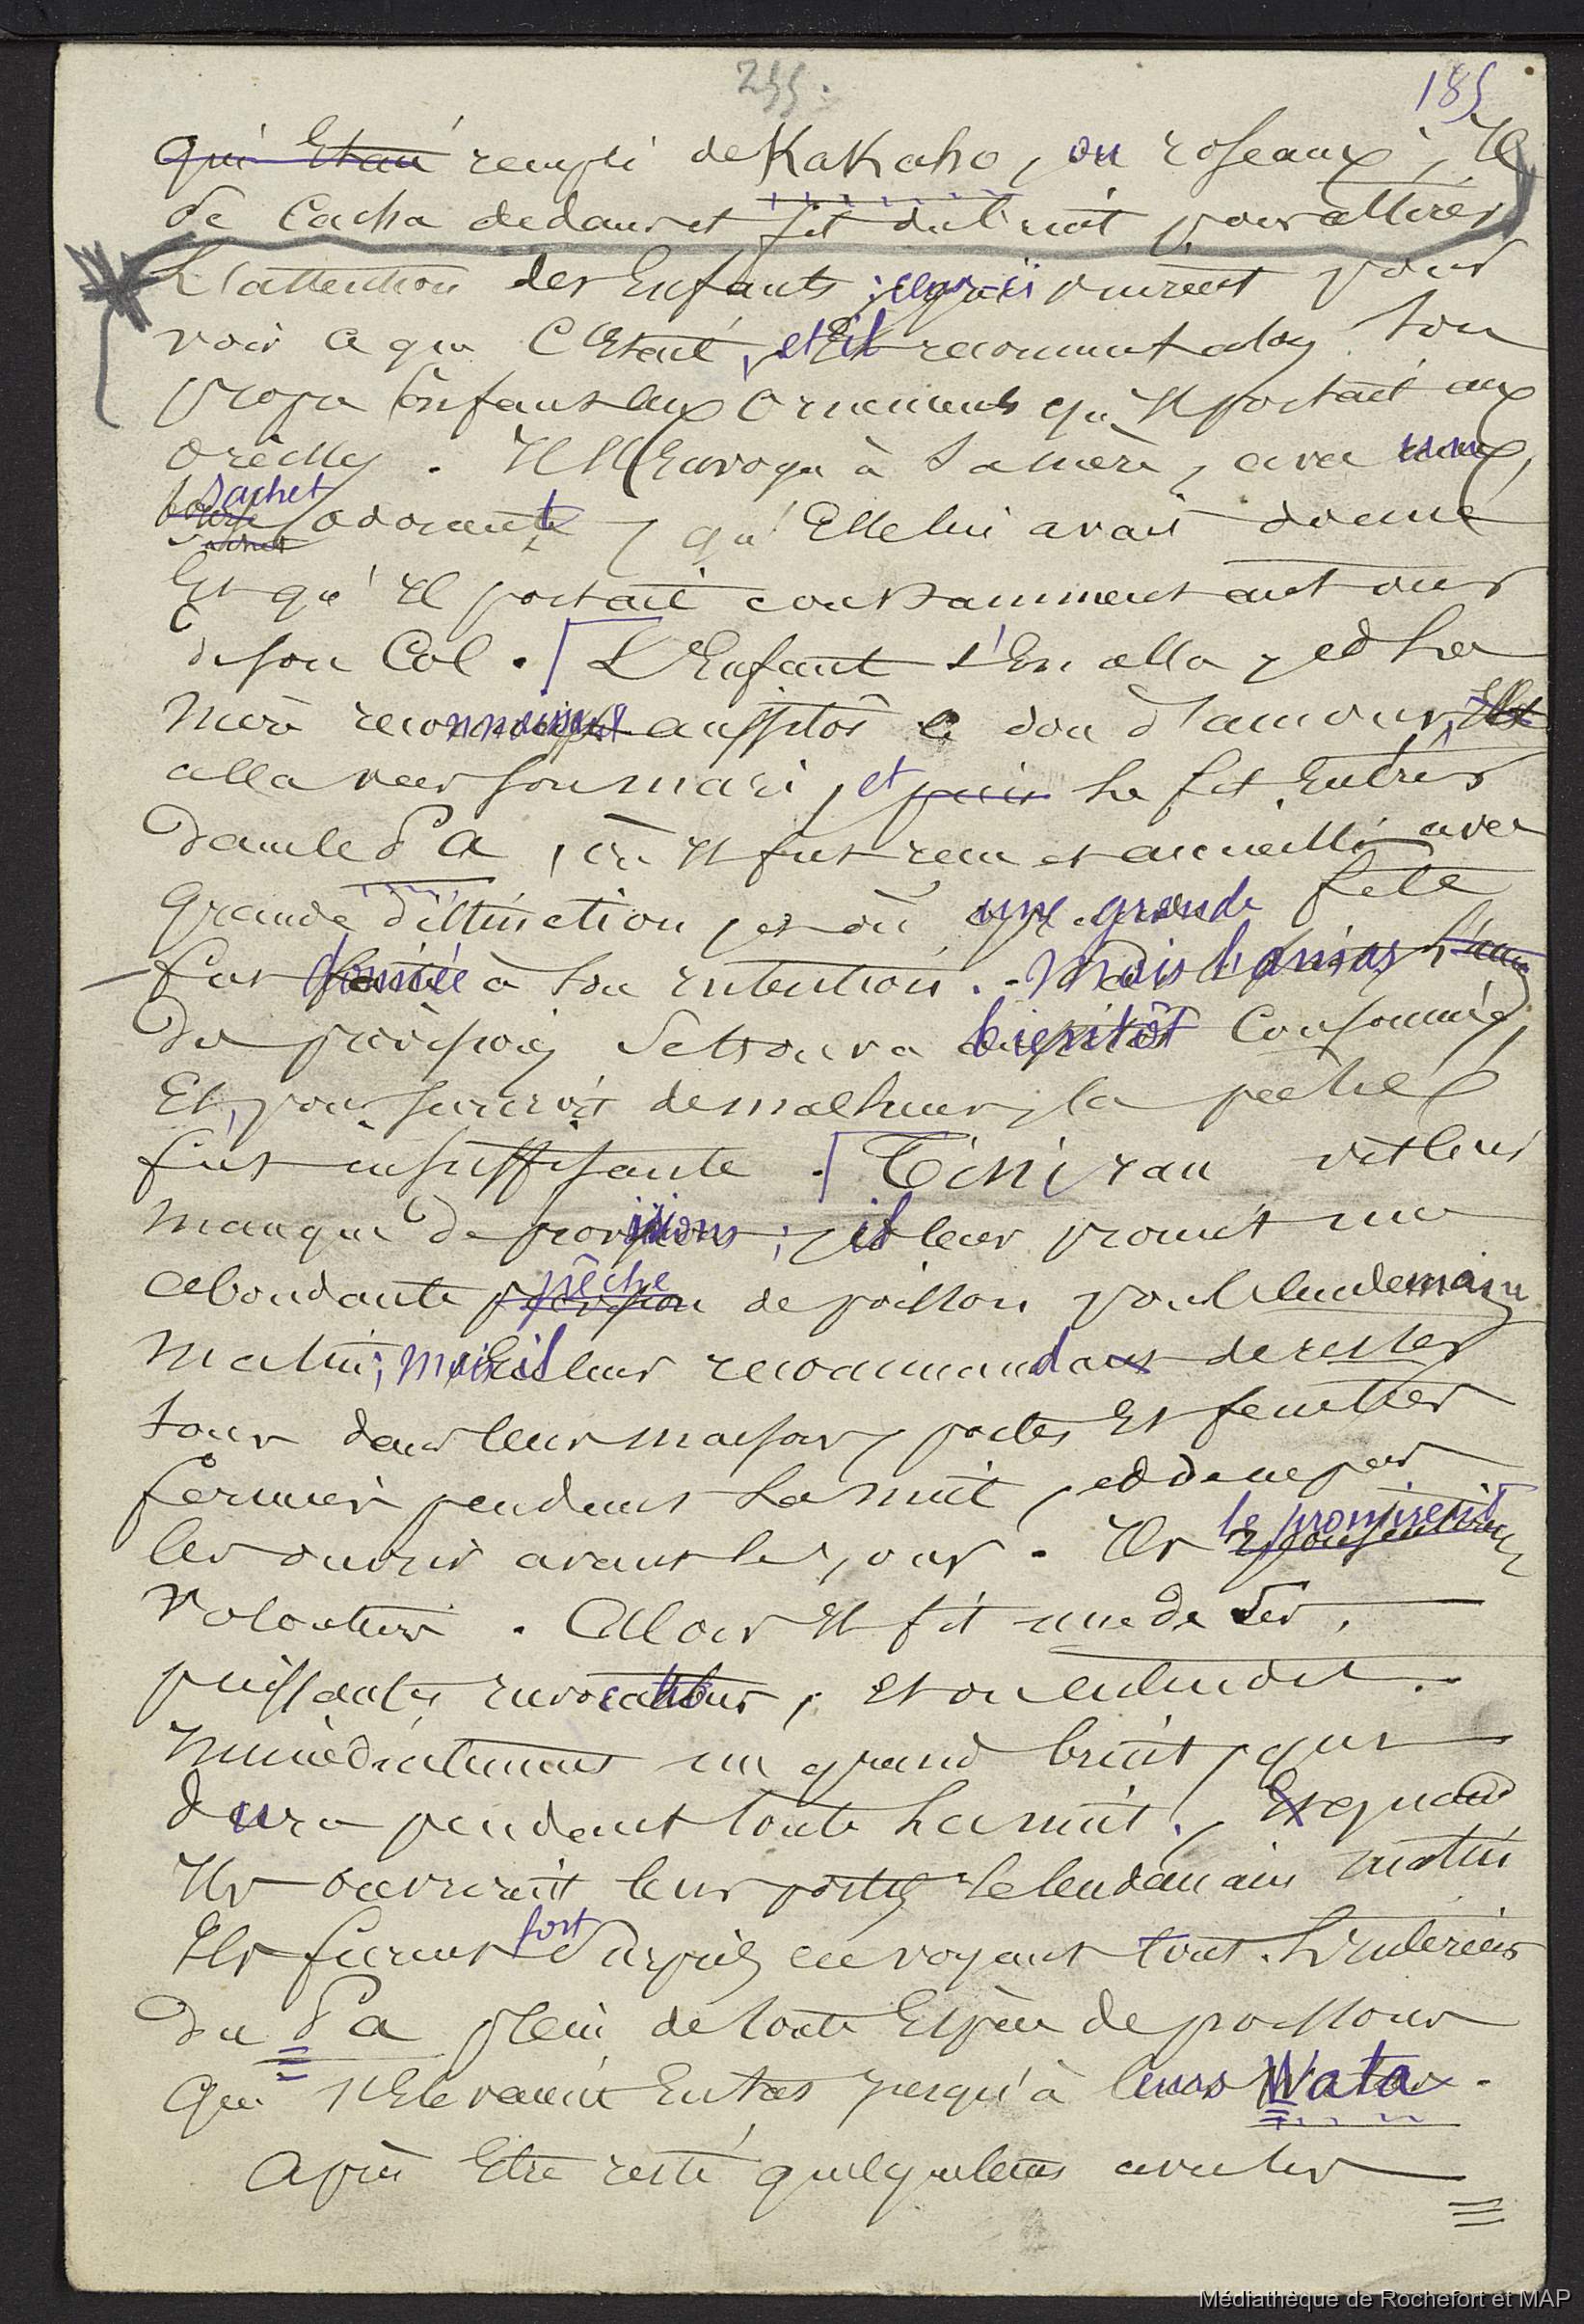 255.
185
qui Etait rempli de Kakaho, ou roseaux ; Il
se cacha dedans et fit du bruit pour attirer
L'attention des Enfants ; ceux-ci vinrent pour
voir ce que C'Etait, et il reconnut alors son
propre Enfant aux Ornements qu'Il portait aux
oreilles. Il l'Envoya à sa mère, avec un
sachet
bourse odorant, qu'Elle lui avait donné
Et qu'Il portait constamment autour
de son Col. L'Enfant s'En alla, et la
Mère reconnaissant aussitôt le don d'amour, Elle
alla vers son mari, et puis le fit Entrer
dans le Pa, où Il fut reçu et accueilli avec
grande distinction, et où une grande fête
fut donnée à son intention. Mais l'amas
de provisions se trouva bientôt Consommé,
Et, pour surcroît de malheur, la pêche
fut insuffisante. Tinirau vit leur
manque de provisions ; il leur promit une
abondante pêche de poisson pour le lendemain
Matin ; mais il leur recommanda de rester
tous dans leur maison, portes Et fenêtres
fermées pendant La nuit, et de ne pas
les ouvrir avant le jour. Ils le promirent
Volontiers. Alors Il fit une de Ses
puissantes invocations, Et on entendit
Immédiatement un grand bruit, qui
dura pendant toute La nuit. Et quand
Ils ouvrirent leurs portes le lendemain matin
Ils furent fort surpris en voyant tout L'intérieur
du Pa plein de toute Espèce de poissons
Qui s'Elevaient En tas jusqu'à leurs Wata.
Après Etre resté quelque temps avec les
Médiathèque de Rochefort et MAP